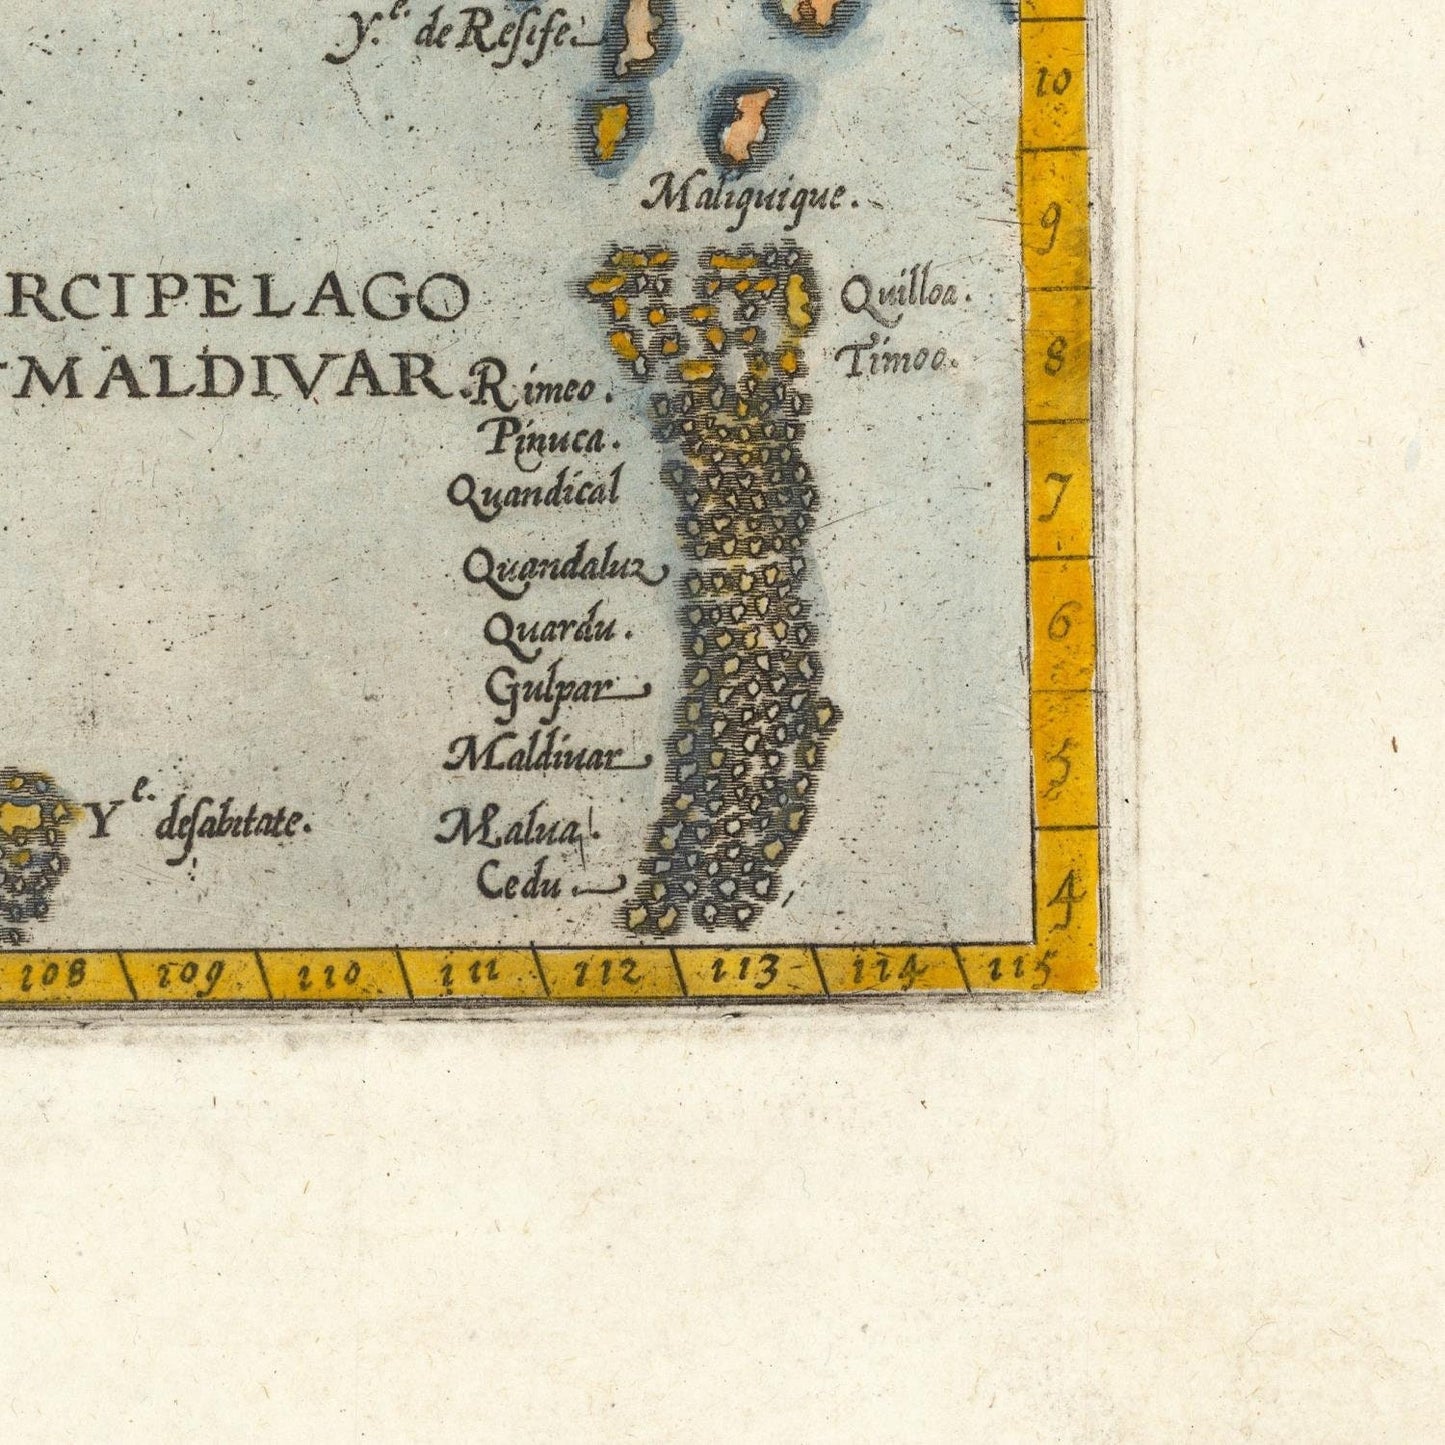 Yᵉ. de Resife.
10
Maliquique.
9
RCIPELAGO
Quilloa.
MALDIVAR.
Rimeo.
Timoo.
8
Pinuca.
Quandical
7
Quandaluz
Quardu.
6
Gulpar
Maldiuar
5
Yᵉ. desabitate.
Malua.
Cedu.
4
108 109 110 111 112 113 114 115